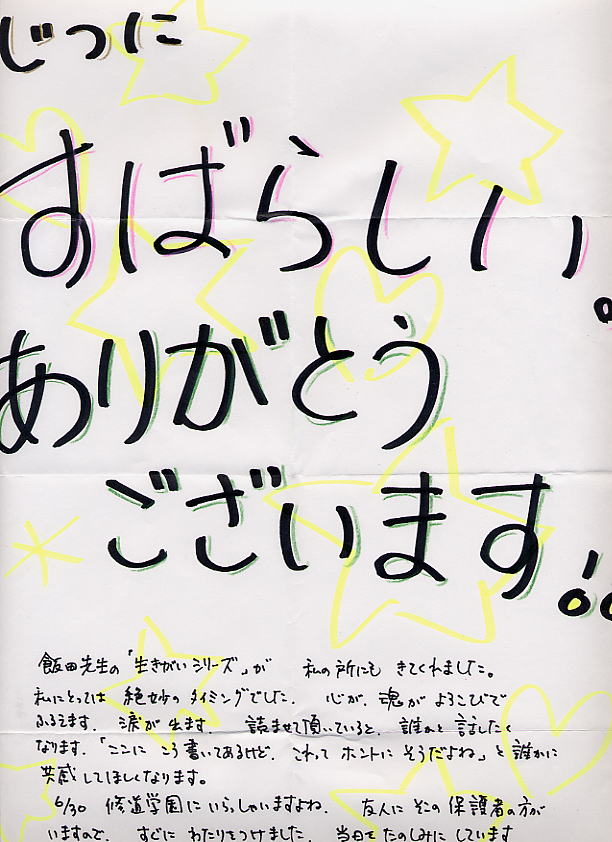 じつに
すばらしい。
ありがとう
ございます!!
飯田先生の「生きがいシリーズ」が 私の所にも きてくれました。
私にとっては 絶妙のタイミングでした. 心が. 魂が よろこびで
ふるえます. 涙が出ます. 読ませて頂いていると. 誰かと 話したく
なります.「ここに こう書いてあるけど. これって ホントに そうだよね」と誰かに
共感してほしくなります。
6/30 修道学園に いらっしゃいますよね. 友人に そこの 保護者の方が
いますので. すぐに わたりをつけました. 当日を たのしみに しています